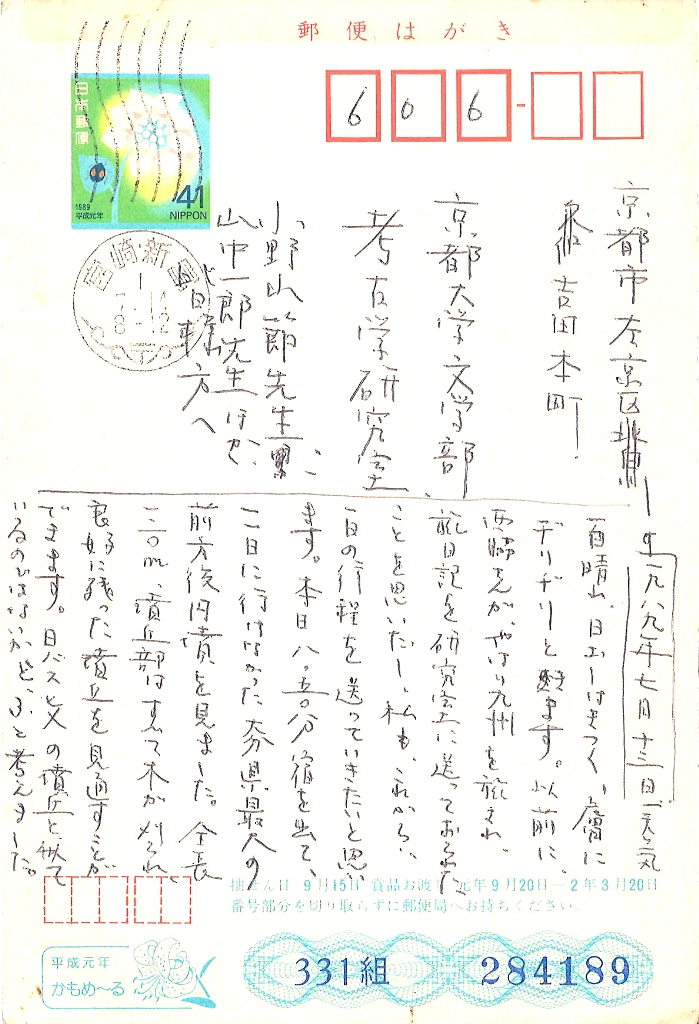 郵便はがき
606-
日本郵便
1989
平成元年
41
NIPPON
宮崎・新富
京都市左京区北白川
吉田本町
京都大学文学部
考古学研究室
小野山節先生
山中一郎先生ほか
方へ
一九八九年七月十三日 天気
晴。日ざしはきつく、膚に
ヂリヂリと来ます。以前に、
さんが、やはり九州を旅され、
旅日記を研究室に送っておられた
ことを思いだし、私も、これから、
一日の行程を送っていきたいと思い
ます。本日八・五〇分宿を出て、
一日に行けなかった大分県最大の
前方後円墳を見ました。全長
一二〇m、墳丘部はすべて木が刈られ、
良好に残った墳丘を見通すことが
できます。日バス七メの墳丘と似て
いるのではないかと、ふと考えました。
抽せん日 9月15日 賞品お渡し 元年9月20日—2年3月20日
番号部分を切り取らずに郵便局へお持ちください。
平成元年
かもめ〜る
331組 284189